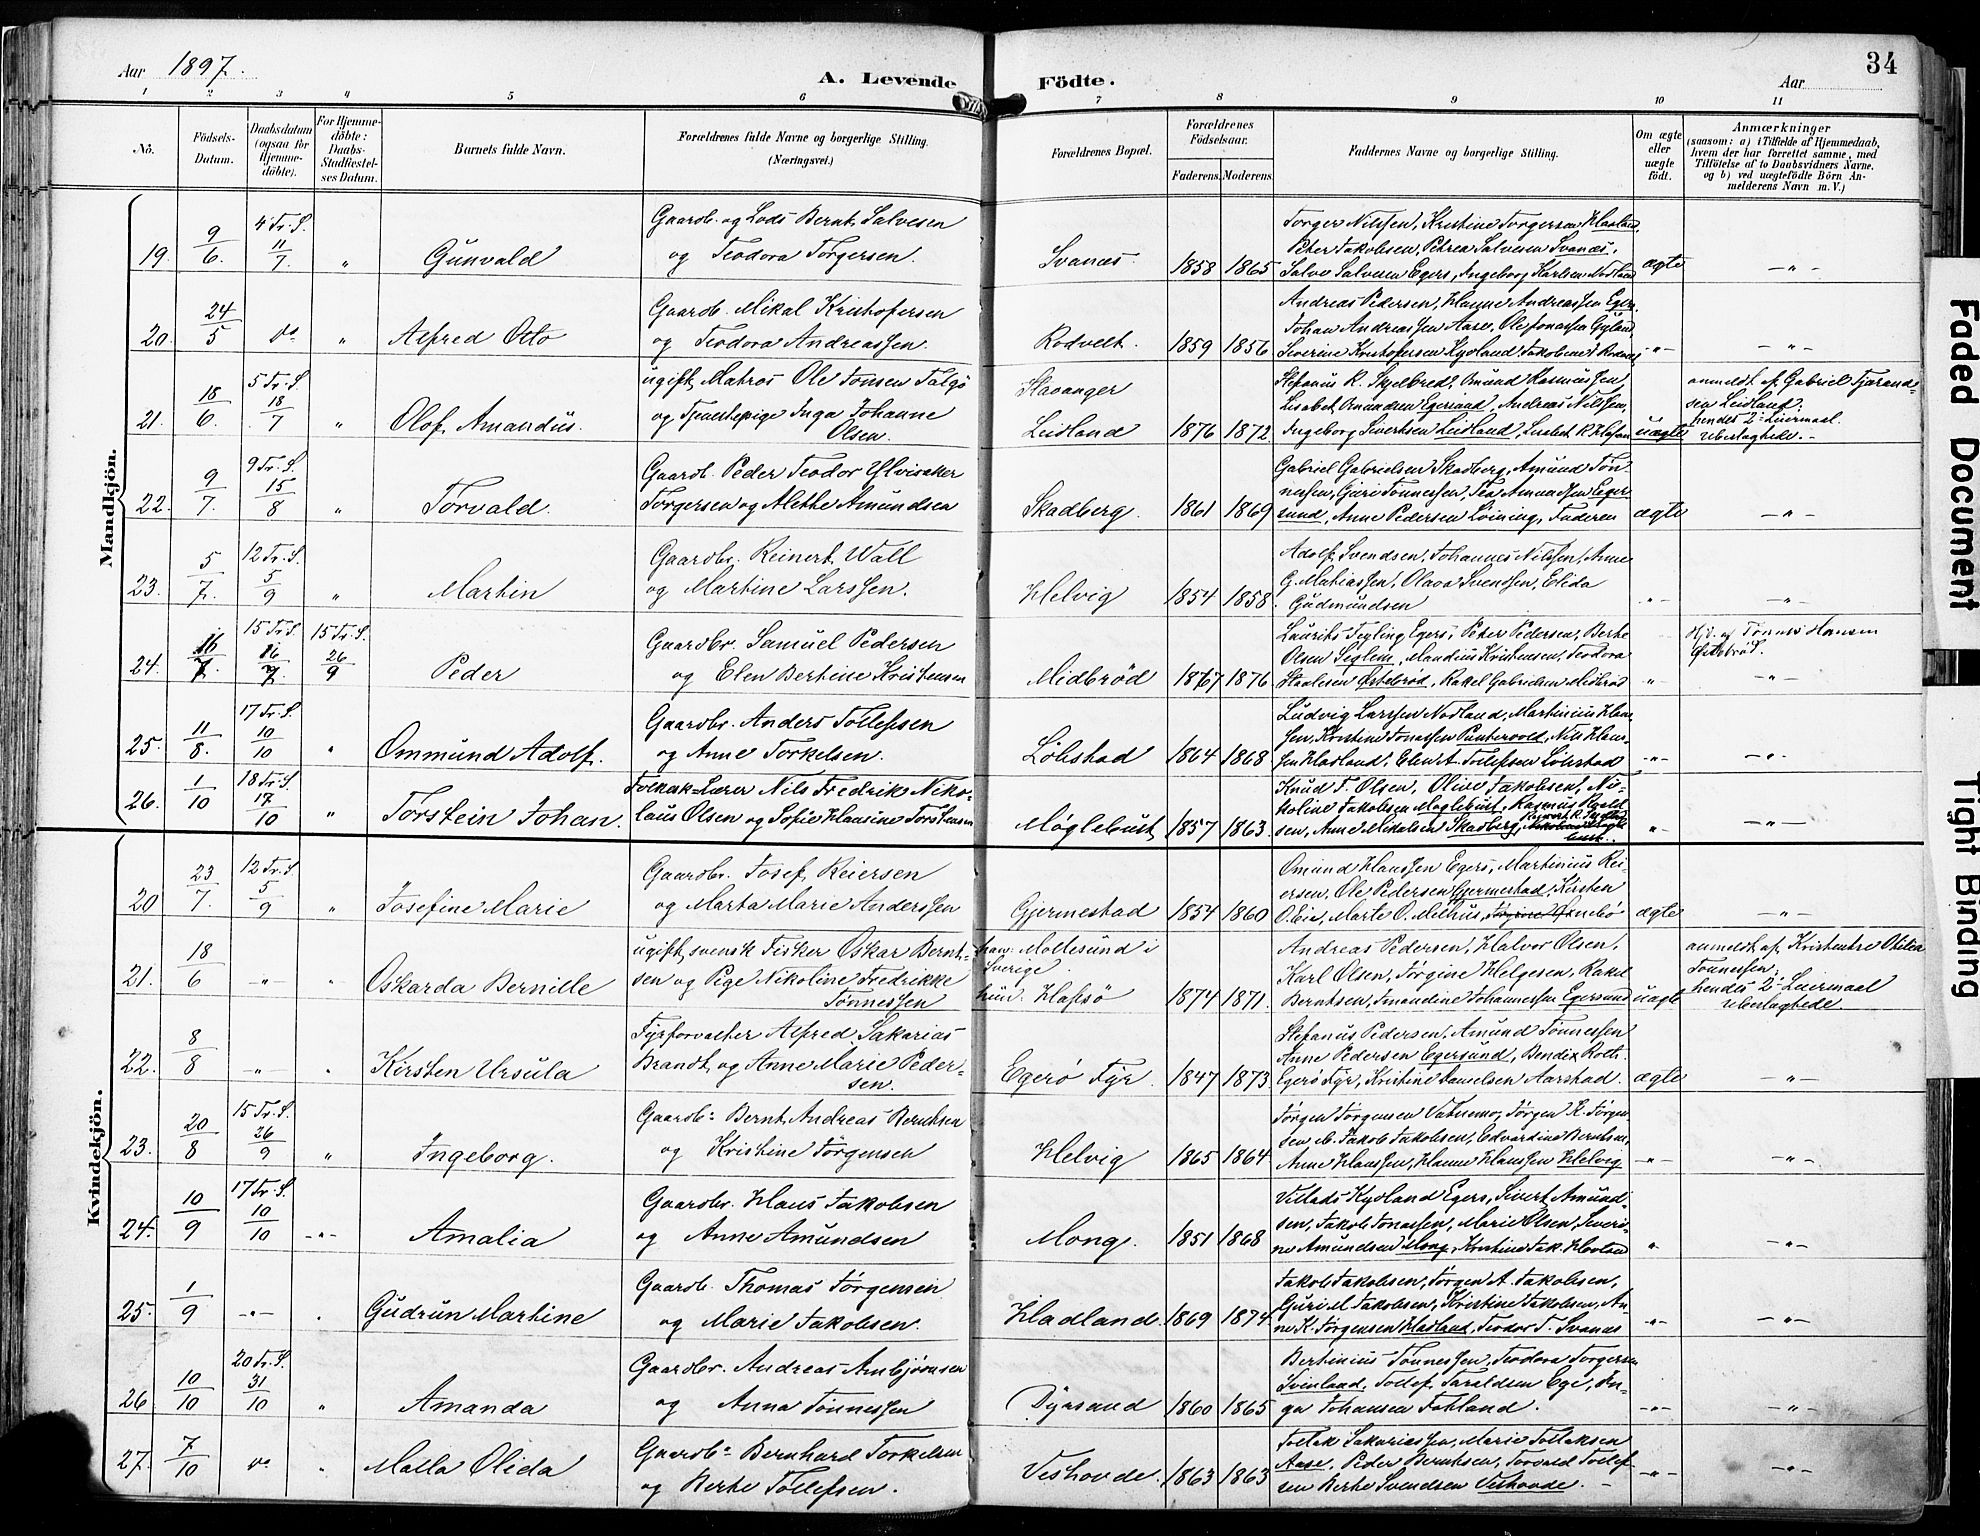 Aar 1897.
A. Levende Födte.
Aar
34
1 2 3 4 5 6 7 8 9 10 11
No.
Födsels-
Datum.
Daabsdatum
(ogsaa for
Hjemme-
döbte).
For Hjemme-
döbte:
Daabs-
Stadfæstel-
ses Datum.
Barnets fulde Navn.
Forældrenes fulde Navne og borgerlige Stilling.
(Næringsvei.)
Forældrenes Bopæl.
Forældrenes
Födselsaar.
Faderens. Moderens.
Faddernes Navne og borgerlige Stilling.
Om ægte
eller
uægte
födt.
Anmærkninger
(saasom: a) i Tilfælde af Hjemmedaab,
hvem der har forrettet samme, med
Tilföielse af to Daabsvidners Navne,
og b) ved uægtefödte Börn An-
melderens Navn m. V.)
Mandkjön.
19. 9/6. 4 Tr. S. 11/7. " Gunvald
Gaardb. og Lods Bernt Salvesen
og Teodora Torgersen.
Svanæs. 1858 1865
Torger Nilssen, Kristine Torgersen Havland,
Peter Jakobsen, Petrea Salvesen Svanæs,
Salve Salvesen Egers, Ingeborg Karlsen Nodland
ægte —"—
20. 24/5 do " Alfred Otto
Gaardb. Mikal Kristofersen
og Teodora Andreassen.
Rodvelt. 1859 1856
Andreas Pedersen, Hanne Andreassen Eger.
Johan Andreassen Aase, Ole Jonassen Gyland
Severine Kristofersen Hydland
"— —"—
21. 18/6. 5 Tr. S. 18/7 " Olof Amandus.
ugift Matros Ole Jonsen Talgö
og Tjenestepige Inga Johanne
Olsen.
Stavanger
Leidland 1876 1872
Stefanus R. Skjelbred, Omund Rasmussen,
Lisabet Omundsen Egersund, Andreas Nilssen,
Ingeborg Sivertsen Leidland,
uægte
anmeldt af Gabriel Tjerand-
sen Leidland.
hendes 2det Leiermaal.
Ubeslægtede.
22. 9/7. 9 Tr. S. 15/8 " Torvald.
Gaardb. Peder Teodor Ylvisaker
Torgersen og Alette Amundsen
Skadberg. 1861 1869
Gabriel Gabrielsen Skadberg, Amund Tön-
nessen, Guri Tönnessen, Tea Amundsen Eger-
sund, Anne Pedersen Löining, Faderen
ægte —"—
23. 5/7. 12 Tr. S. 5/9 " Martin
Gaardbr. Reinert Wall
og Martine Larssen.
Helvig 1854 1858.
Adolf Svendsen, Johannes Nilssen, Anne
G. Mathiassen, Olava Svendsen, Elida
Gudmundsen
"— —"—
24. 16/7. 15 Tr. S. 16/7. 15 Tr. S. 26/9 Peder
Gaardbr. Samuel Pedersen
og Elen Bertine Kristensen
Midbröd 1867 1876
Laurits Tegling Egers, Peter Pedersen, Berte
Olsen Seglem, Mandius Kristensen, Teodora
Staalesen Østebröd, Rakel Gabrielsen Midbröd
"
Hjd. af Tönnes Hansen
Østebröd.
—"—
25. 11/8. 17 Tr. S. 10/10 " Ommund Adolf.
Gaardbr. Anders Tollefsen
og Anne Torkelsen.
Løbstad 1864 1868
Ludvig Larssen Nodland, Martinius Han-
sen, Kristine Jonassen Puntervold, Nils Hans-
sen Hadland, Elen A. Tollefsen Løbstad
—"— —"—
26. 1/10 18 Tr. S. 17/10 " Torstein Johan.
Folkesk. Lærer Nils Fredrik Niko-
laus Olsen og Sofie Hansine Torstensen
Møglebust 1857 1863
Knud F. Olsen, Olive Jakobsen, Ni-
koline Jakobsen Møglebust, Rasmus
sen, Anne Mikalsen Skadberg,
" —"—
Kvindekjön.
20 23/7. 12 Tr. S. 5/9 " Josefine Marie
Gaardbr. Josef Reiersen
og Marta Marie Anderssen
Gjermestad 1854 1860
Omund Hanssen Egers, Martinius Rei-
ersen, Ole Pedersen Gjermestad, Kirsten
Obie, Marte O. Melhus,
ægte —"—
21. 18/6 —"— " Oskarda Bernille
ugift svensk Fisker Oskar Bernt-
sen og Pige Nikoline Fredrikke
Tönnessen
han: Mollesund i
Sverige.
hun. Hafsö 1874 1871.
Andreas Pedersen, Halvor Olsen,
Karl Olsen, Jörgine Helgesen, Rakel
Berntsen, Amandine Johannessen Egersund
uægte
anmeldt af Kristentse Otilia
Tönnessen;
hendes 2det Leiermaal
Ubeslægtede.
22. 8/8 —"— " Kirsten Ursula
Fyrforvalter Alfred Sakarias
Brandt og Anne Marie Peder-
sen.
Egerö Fyr. 1847 1873
Stefanus Pedersen, Amund Tönnessen
Anne Pedersen Egersund, Bendix Roth.
Egerö Fyr, Kristine Danielsen Aarstad.
ægte —"—
23. 20/8 15 Tr. S. 26/9 " Ingeborg.
Gaardbr. Bernt Andreas Berntsen
og Kristine Törgensen
Helvig 1865 1864
Jörgen Jörgensen Vatnemo, Jörgen K. Jörgen-
sen, Jakob Jakobsen, Edvardine Berntsen,
Anne Hanssen, Hanne Hanssen Helvig
—"— —"—
24. 10/9 17 Tr. S. 10/10 —"— Amalia
Gaardbr. Hans Jakobsen
og Anne Amundsen
Mong. 1851 1868
Villads Hydland Egers, Sivert Amund-
sen, Jakob Jonassen, Marie Olsen, Severi-
ne Amundsen Mong, Kristine Jak. Hovland
" —"—
25. 1/9 —"— Gudrun Martine
Gaardb. Thomas Jörgensen
og Marie Jakobsen.
Hadland. 1869 1874
Jakob Jakobsen, Jörgen A. Jakobsen,
Guri M. Jakobsen, Kristine Jakobsen, An-
ne K. Jörgensen Hadland, Teodor T. Svanæs
—"— —"—
26 10/10 20 Tr. S. 31/10 " Amanda
Gaardbr. Andreas Anbjörnsen
og Anna Tönnessen
Dyrsand 1860 1865
Bertinius Tönnessen, Teodora Torgersen
Svinland, Tollef Taraldsen Ege, In-
ga Johansen Fotland.
—"— —"—
27. 7/10 do " Malla Olida
Gaardbr. Bernhard Torkelsen
og Berte Tollefsen.
Veshovde. 1863 1863
Tollak Sakariassen, Marie Tollaksen
Aase, Peder Berntsen, Torvald Tollef-
sen Berte Svendsen Veshovde.
—"— —"—
Faded Document
Tight Binding